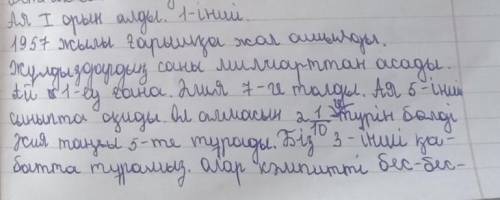 Ая I орын алды. 1-інші.
1957 жылы ғарышқа жол ашылды.
Жұлдыздардың саны миллиарттан асады.
Ай 1-еу ғана. Зия 7-ге толды. Ая 5-інші
сыныпта оқиды. Ол алмасын 2 1/10 түрін бөлді
Жия таңғы 5-те тұрады. Біз 3-інші қа-
батта тұрамыз. Олар кәмпитті бес-бес-